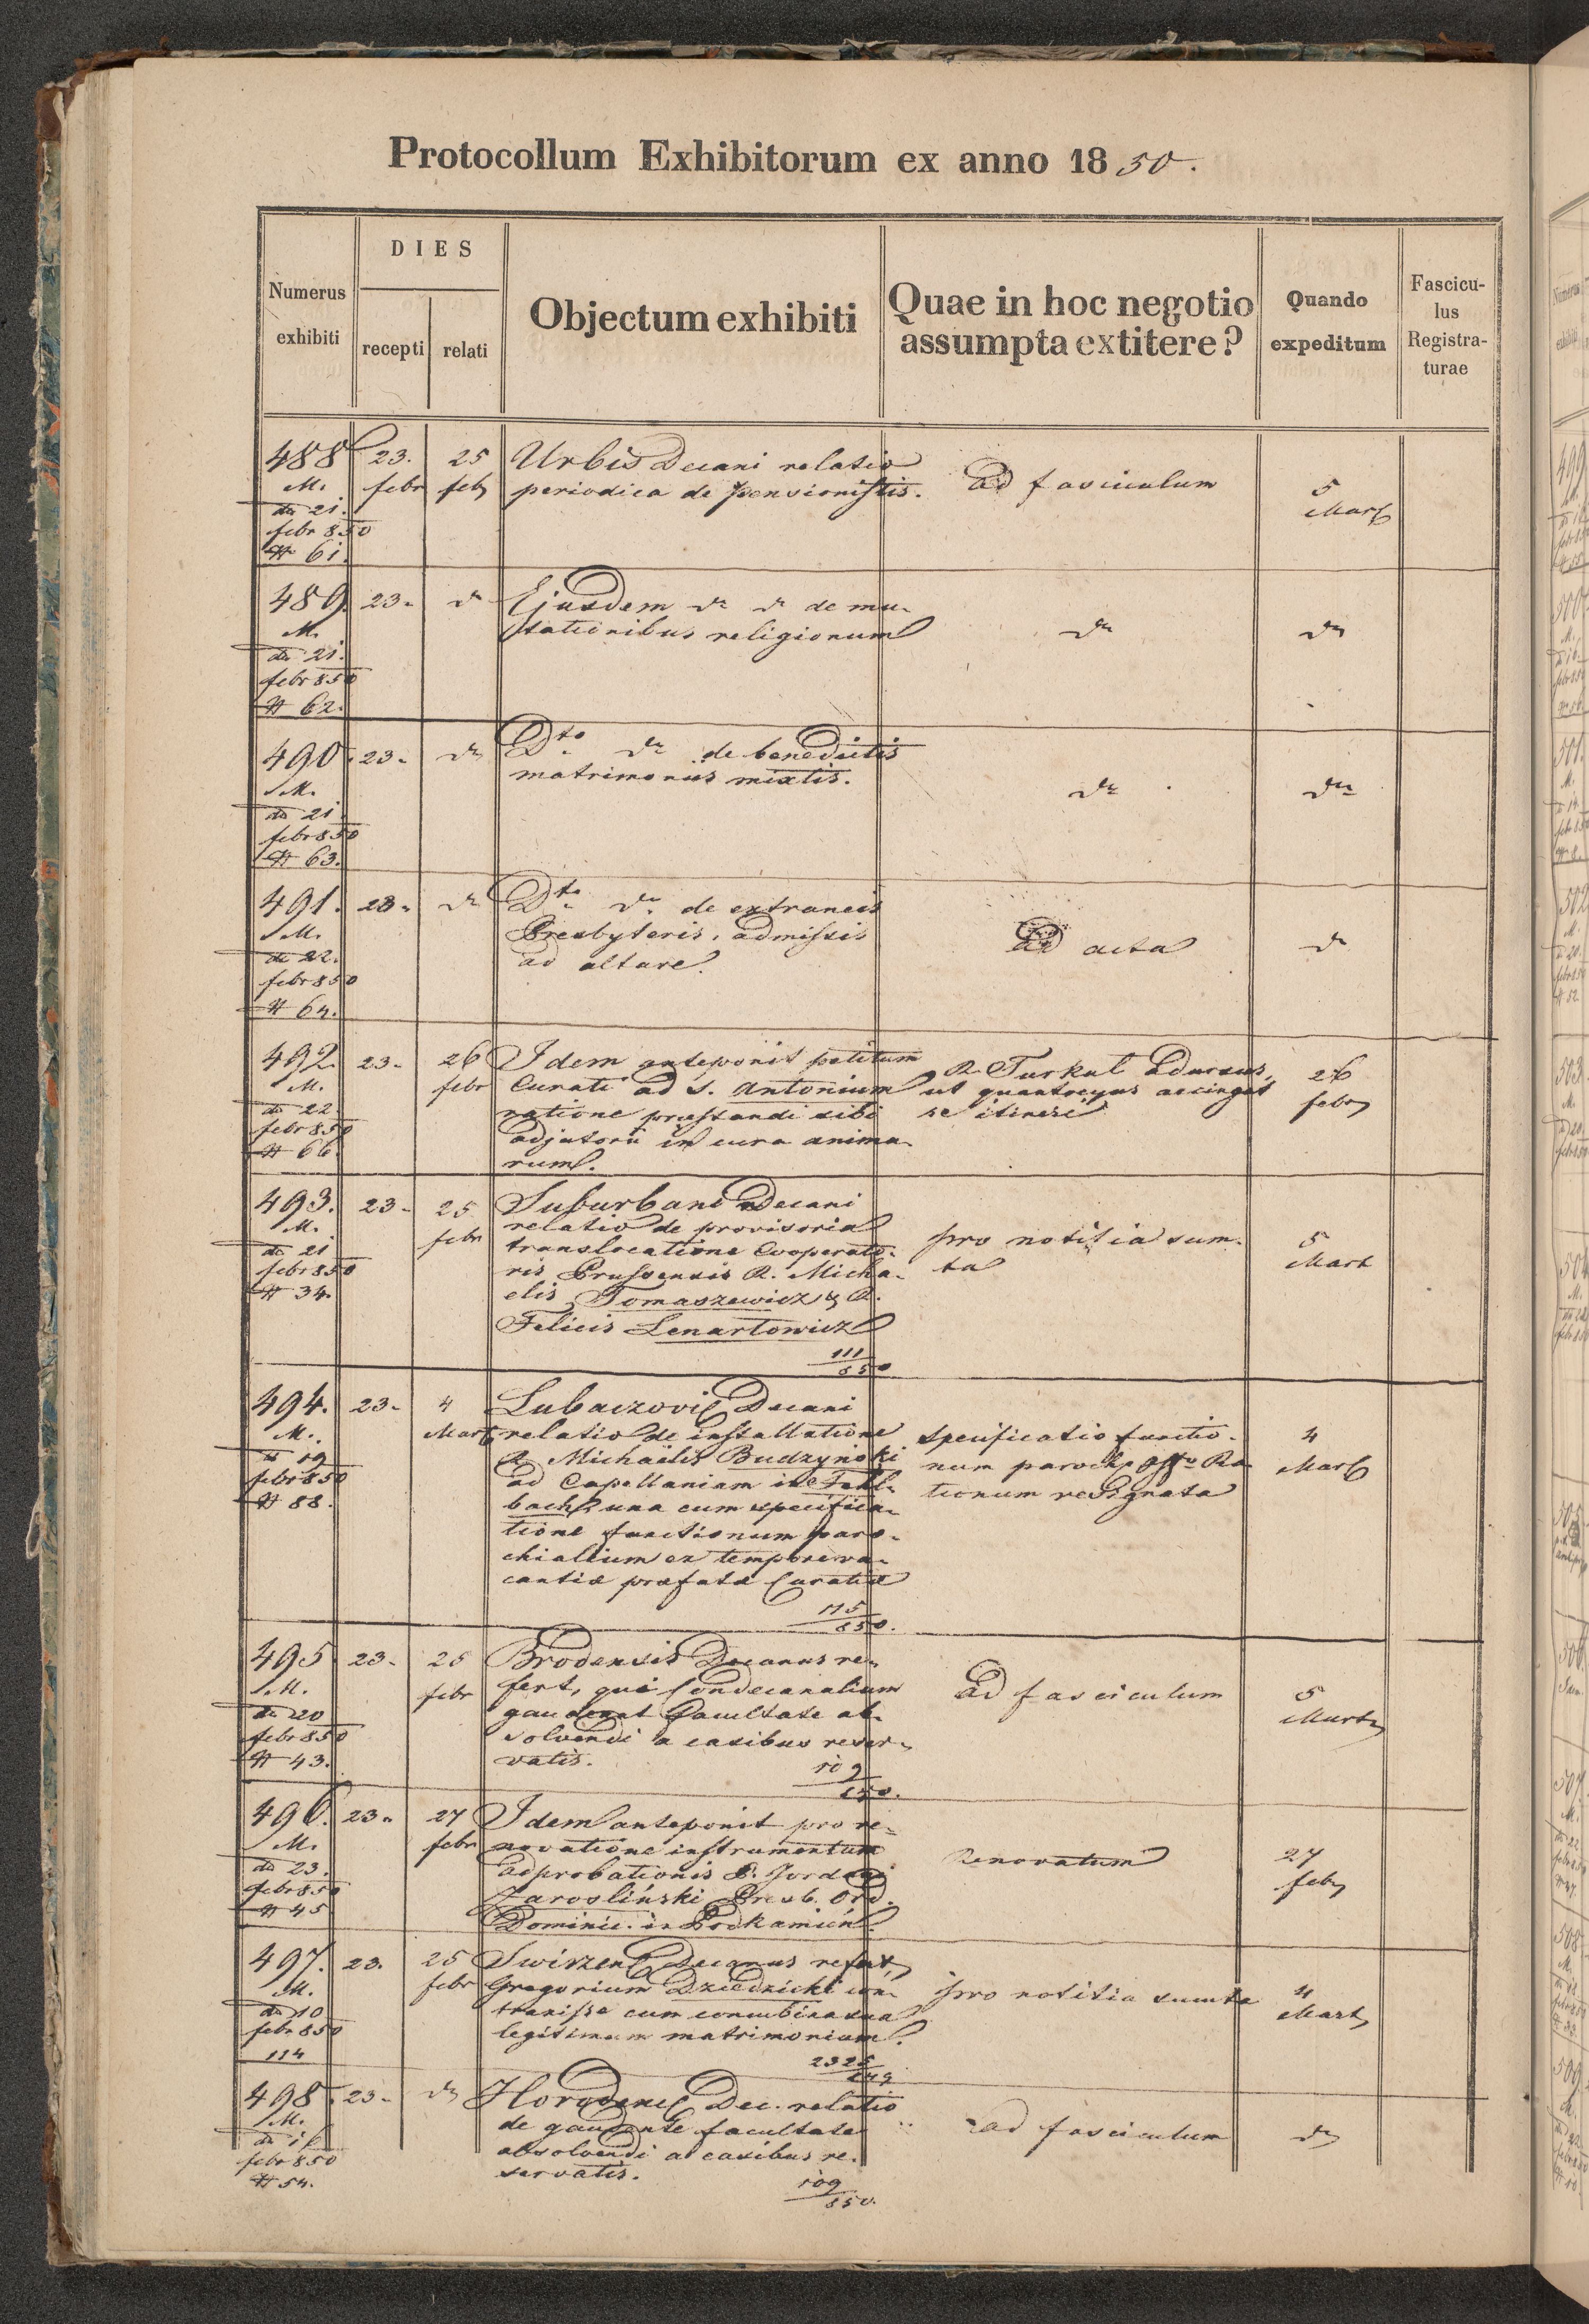 Protocollum Exhibitorum ex anno 1850.
Numerus
exhibiti
DIES
recepti
relati
Objectum exhibiti
Quae in hoc negotio
assumpta extitere?
Quando
expeditum
Fascicu-
lus
Registra-
turae
488
M.
do 21.
febr 850
# 61.
23.
febr
25
feb
Urbis Decani relatio
periodica de pensionistis.
Ad fasciculum
5
Mart
489.
M.
do 21.
febr 850
# 62.
23.
do
Ejusdem do do de mu-
tationibus religionum
do
do
490
M.
do 21
febr 850
# 63.
23.
do
Dto do de benedictis
matrimoniis mixtis.
do
do
491.
M.
do 22.
febr 850
# 64.
23.
do
Dto do de extraneis
Presbyteris, admissis
ad altare.
Ad acta
do
492.
M.
do 22
febr 850
# 66.
23.
26
febr
Idem anteponit petitum
Curati ad S. Antonium
ratione præstandi sibi
adjutorii in cura anima-
rum.
R. Turkut
ut quantocyus accingat
se itineri
26
febr
493.
M.
do 21
febr 850
# 34.
23.
25
febr
Suburbani Decani
relatio de provisoria
translocatione Cooperato-
ris Prussensis R. Micha-
elis Tomaszewicz & R.
Felicis Lenartowicz
111
850
pro notitia sum-
ta
5
Mart
494.
M.
do 19
febr 850
# 88.
23.
4
Mart
Lubaczovi Decani
relatio de installatione
R. Michaelis Budzynski
ad Capellaniam in Fehl-
bach, una cum specifica-
tione functionum paro-
chialium ex tempore va-
cantiæ præfatæ Curatiæ
115
850.
Specificatio functio-
num paroch. Offo Ra
tionum resignata
4
Mart
495
M.
do 20
febr 850
# 43.
23.
25
febr
Brodensis Decanus re-
fert, qui Condecanalium
gaudeant facultate ab-
solvendi a casibus reser-
vatis.
109
850.
Ad fasciculum
5
Mart
496.
M.
do 23.
febr 850
# 45
23.
27
febr
Idem anteponit pro re-
novatione instrumentum
adprobationis P. Jordani
Zarosliński Presb. Ord.
Dominic. in Podkamień.
Renovatum
27
feb
497.
M.
do 10
febr 850
114
23.
25
febr
Swirzen Decanus refert,
Gregorium Dziedzicki con-
traxisse cum concubina sua
legitimum matrimonium.
2325
849
pro notitia sumta
4
Mart
498.
M.
febr 850
# 54.
23.
do
Horoden Dec. relatio
de gaudente facultate
absolvendi a casibus re-
servatis.
109
850.
ad fasciculum
do